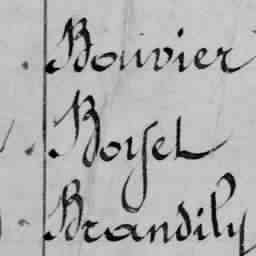 Bouvier
Boysel
Brandily